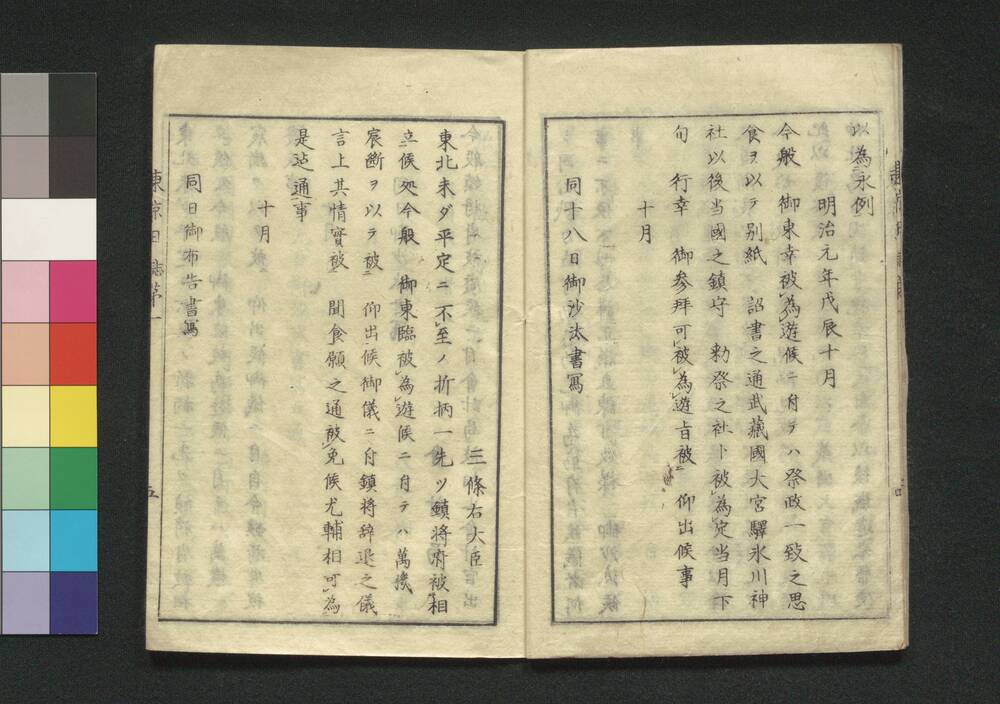 以為永例
明治元年戊辰十月
今般　御東幸被為遊候ニ付テハ祭政一致之思
食ヲ以テ別紙　詔書之通武蔵國大宮驛氷川神
社以後当國之鎮守　勅祭之社ト被為定当月下
旬　行幸　御参拝可被為遊旨被　仰出候事
十月
同十八日御沙汰書寫
三條右大臣
東北未ダ平定ニ不至ノ折柄一先ツ鎮将府被相
立候処今般　御東臨被為遊候ニ付テハ萬機
宸断ヲ以テ被　仰出候御儀ニ付鎮将辞退之儀
言上其情實被　聞食願之通被免候尤輔相可為
是迠通事
十月
同日御布告書寫
東京日誌第一
五